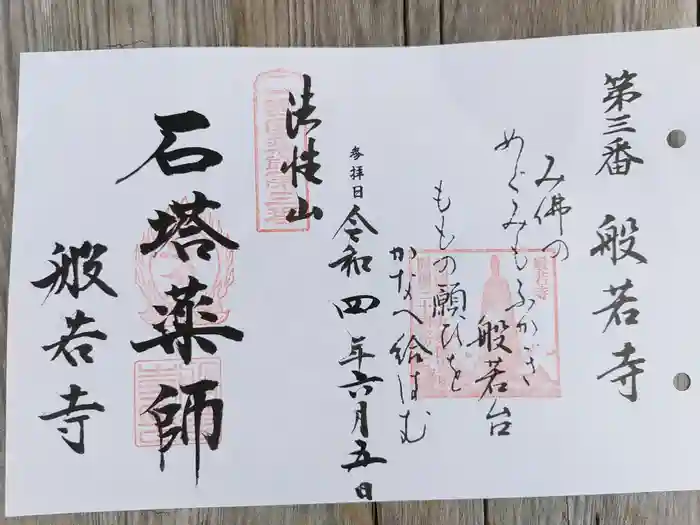 第三番 般若寺
み佛の
めぐみもふかき
般若台
ももの願ひを
かなへ給はむ
参拝日 令和四年六月五日
法性山
石塔薬師
般若寺
般若寺